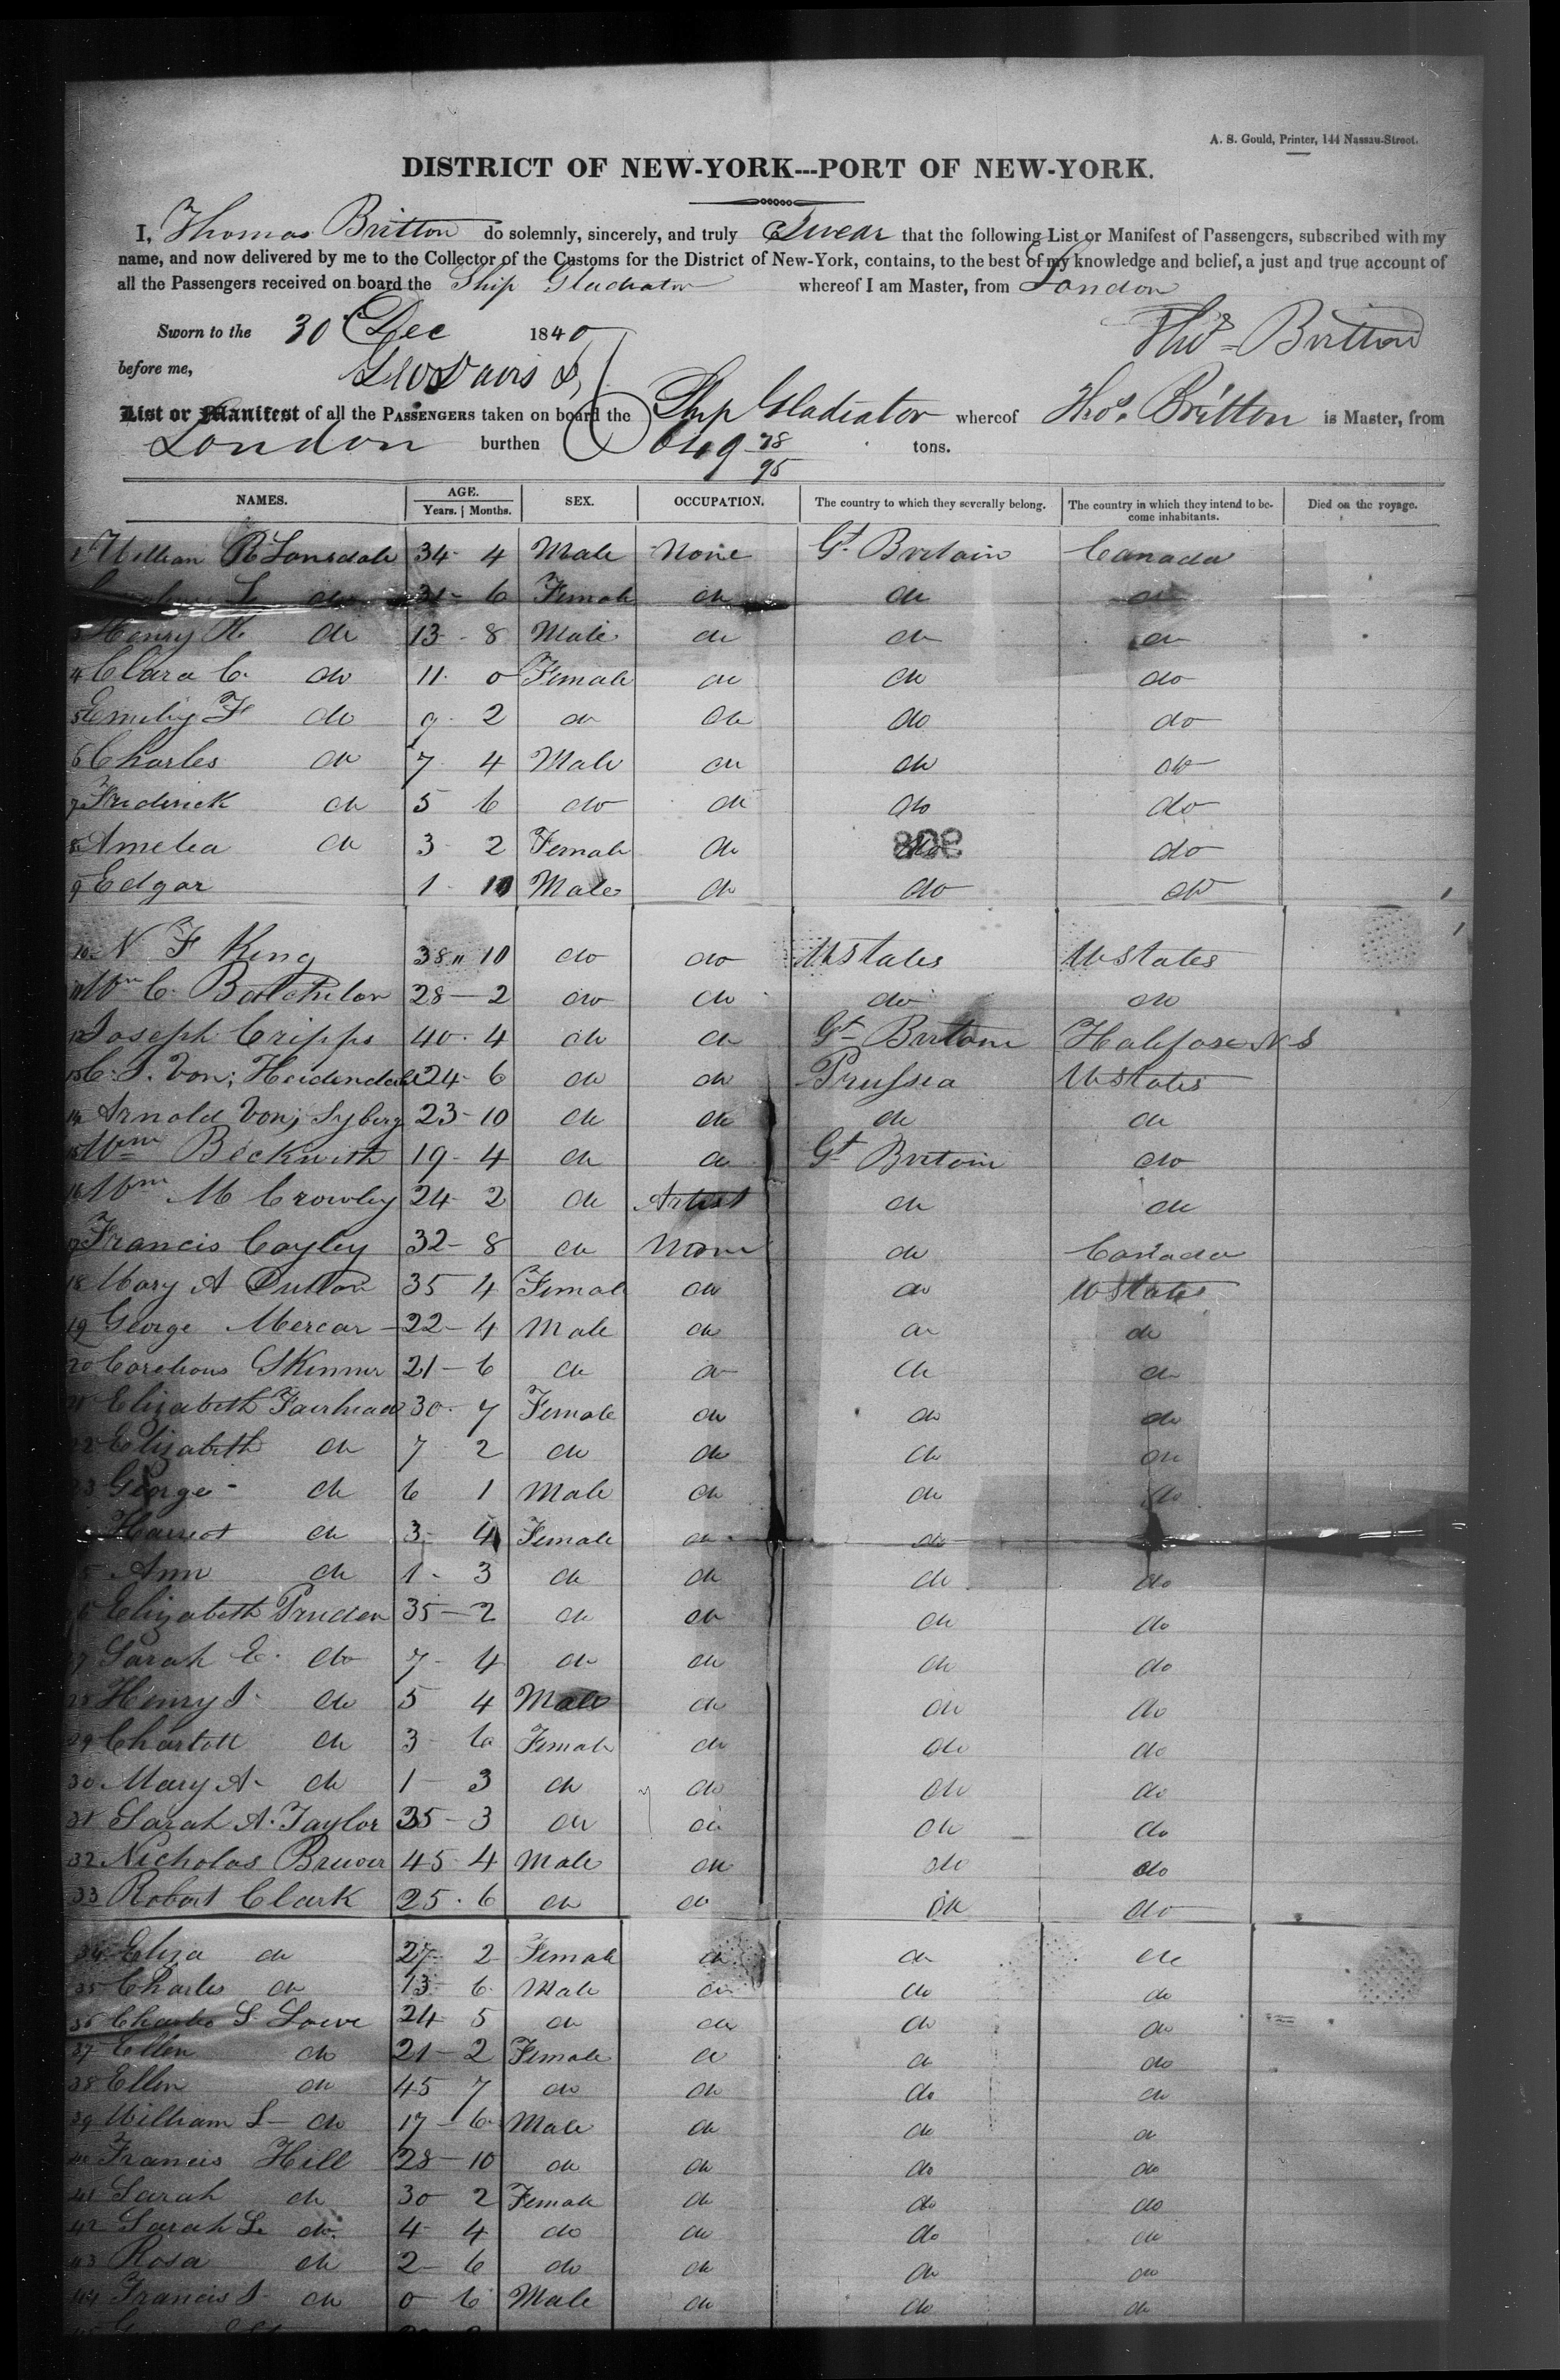 A. S. Gould, Printer, 144 Nassau-Street.
DISTRICT OF NEW-YORK---PORT OF NEW-YORK.
I, Thomas Britton do solemnly, sincerely, and truly Swear that the following List or Manifest of Passengers, subscribed with my
name, and now delivered by me to the Collector of the Customs for the District of New-York, contains, to the best of my knowledge and belief, a just and true account of
all the Passengers received on board the Ship Gladiator whereof I am Master, from London
Sworn to the 30 Dec 1840 Thos Britton
before me,
List or Manifest of all the PASSENGERS taken on board the Ship Gladiator whereof Thos. Britton is Master, from
London burthen 649 28/95 tons.
NAMES. AGE. Years. Months. SEX. OCCUPATION. The country to which they severally belong. The country in which they intend to become inhabitants. Died on the royage.
1 William R Lonsdale 34 4 Male None Gt. Britain Canada
6 Female do do do
3 Henry do 13 8 Male do do do
4 Clara C. do 11 0 Female do do do
5 Emily F do 9 2 do do do do
6 Charles do 7 4 Male do do do
7 Frederick do 5 6 do do do do
8 Amelia do 3 2 Female do do do
808
9 Edgar 1 10 Male do do do
10 N F King 38 " 10 do do UStates UStates
11 Wm C. Batchelor 28 - 2 do do do do
12 Joseph Cripps 40 4 do do Gt Britain Halifax N S
13 C. Von; 24 6 do do Prussia UStates
14 Arnold Von; Syberg 23 - 10 do do do do
15 Wm Beckwith 19 4 do do Gt Britain do
16 Wm M Crowley 24 2 do Artist do do
17 Francis Cayley 32 - 8 do None do Canada
18 Mary A 35 4 Female do do UStates
19 George Mercer - 22 - 4 Male do do do
20 Skinner 21 - 6 do do do do
21 Elizabeth Fairhead 30 7 Female do do do
22 Elizabeth do 7 2 do do do do
23 George - do 6 1 Male do do do
Harriot do 3 - 4 Female do do do
5 Ann do 1 - 3 do do do do
6 Elizabeth Pruden 35 - 2 do do do do
7 Sarah E. do 7 - 4 do do do do
28 Henry do 5 4 Male do do do
29 Charlott do 3 6 Female do do do
30 Mary A - do 1 - 3 do do do do
31 Sarah A. Taylor 35 - 3 do do do do
32 Nicholas Bruver 45 4 Male do do do
33 Robert Clark 25 . 6 do do do do
34 Eliza do 27 2 Female do do do
35 Charles do 13 6 Male do do do
36 Charles S 24 5 do do do do
37 Ellen do 21 - 2 Female do do do
38 Ellen do 45 7 do do do do
39 William S - do 17 - 6 Male do do do
40 Francis Hill 28 - 10 do do do do
41 Sarah do 30 2 Female do do do
42 Sarah S. do. 4 - 4 do do do do
43 Rosa do 2 - 6 do do do do
44 Francis do 0 6 Male do do do